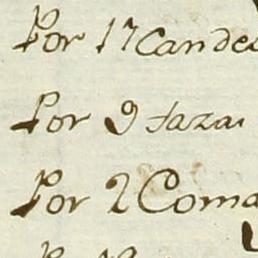 Por 17 Cande
Por 9 tazas
Por 2 Coma